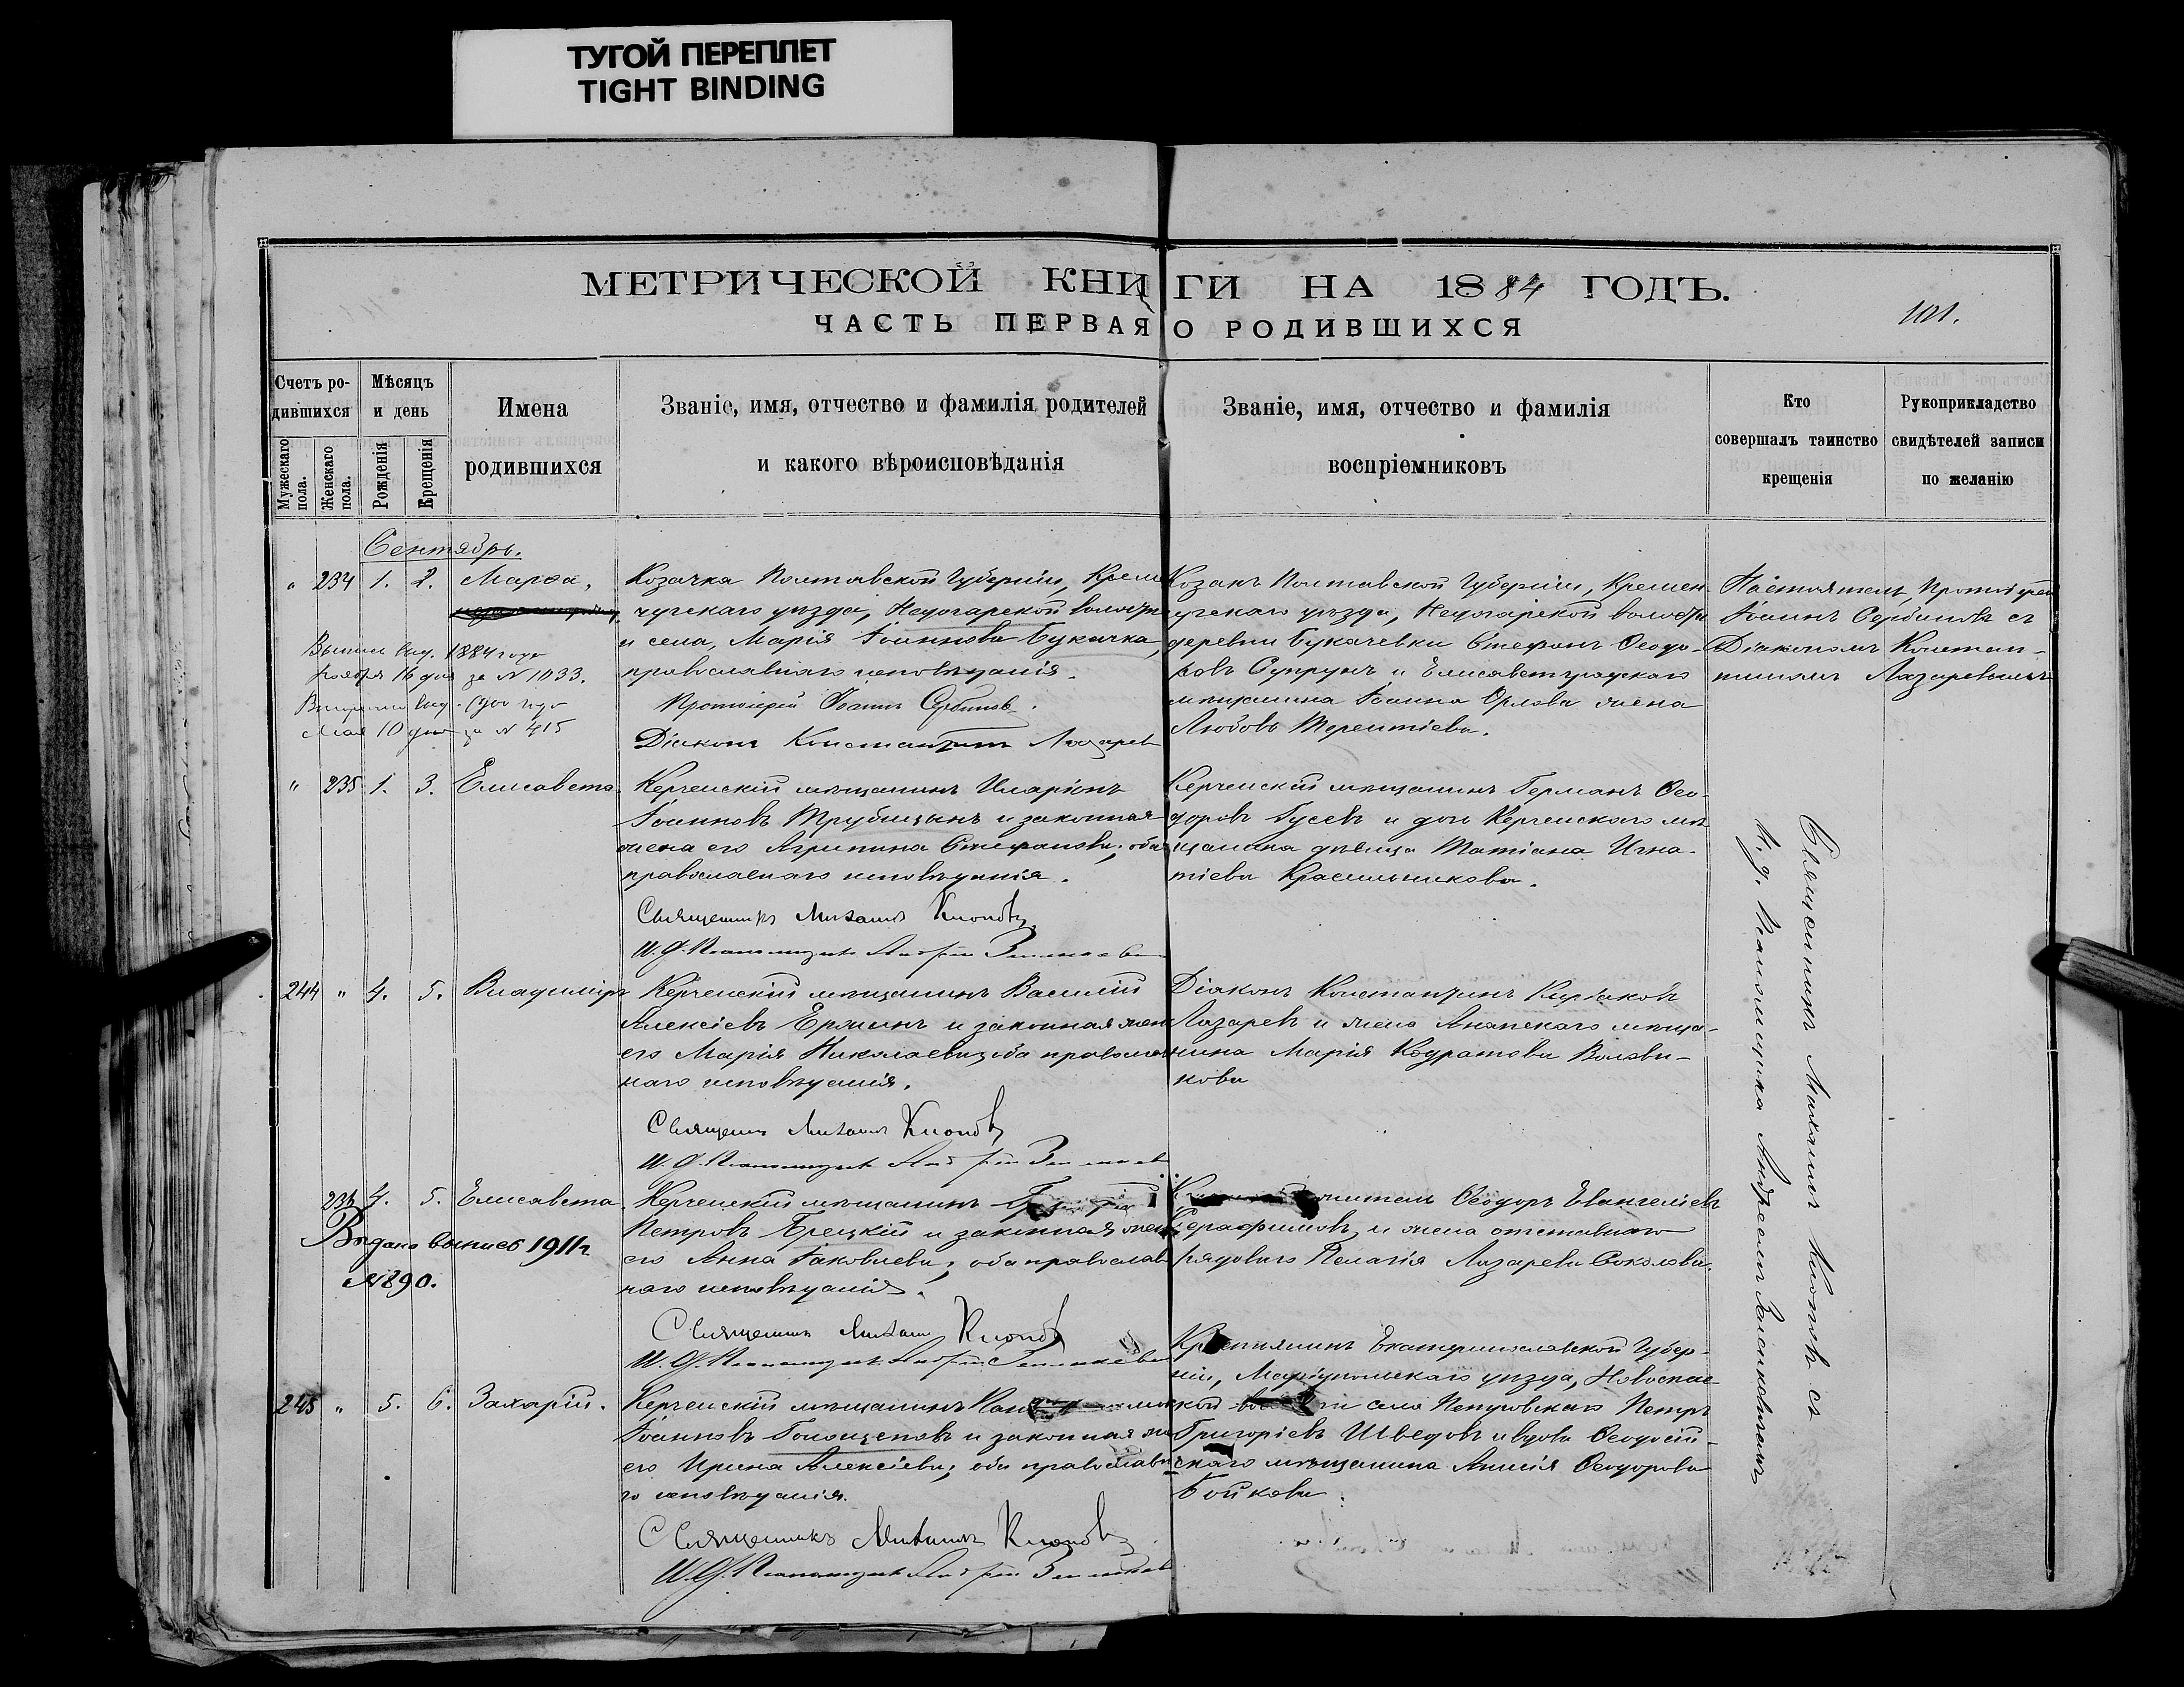 ТУГОЙ ПЕРЕПЛЕТ
TIGHT BINDING
МЕТРИЧЕСКОЙ КНИГИ НА 1884 ГОДЪ.
ЧАСТЬ ПЕРВАЯ О РОДИВШИХСЯ
101.
Счетъ родившихся
Мужескаго пола.
Женскаго пола.
Мѣсяцъ и день
Рожденія
Крещенія
Имена
родившихся
Званіе, имя, отчество и фамилія родителей
и какого вѣроисповѣданія
Званіе, имя, отчество и фамилія
воспріемниковъ
Кто
совершалъ таинство
крещенія
Рукоприкладство
свидѣтелей записи
по желанію
Сентябрь.
" 234 1. 2. Марѳа,
1884 года
Ноября 16 дня за № 1033.
Мая 10 дня за № 415
Козачка Полтавской Губерніи, Кремен
чугскаго уѣзда, Недогарской волости
и села, Марія Іоаннова Букачка,
православнаго исповѣданія.
Протоіерей Іоаннъ Сербиновъ.
Діаконъ Константинъ Лазаревъ
Козакъ Полтавской Губерніи, Кремен
чугскаго уѣзда, Недогарской волости
деревни Букачевки Стефанъ Ѳеодо-
ровъ Супрунъ и Елисаветградскаго
мѣщанина Іоанна Орлова жена
Любовь Терентіева.
Настоятель, Протоіерей
Іоаннъ Сербиновъ съ
Діакономъ Констан-
тиномъ Лазаревымъ
" 235 1. 3. Елисавета.
Керченскій мѣщанинъ Иларіонъ
Іоанновъ Трубицынъ и законная
жена его Агрипина Стефанова; оба
православнаго исповѣданія.
Священникъ Михаилъ Клоповъ
И. д. Псаломщика Андрей
Керченскій мѣщанинъ Германъ Ѳео-
доровъ Гусевъ и дочь Керченскаго мѣ
щанина дѣвица Татіана Игна-
тіева Красильникова.
Священникъ Михаилъ Клоповъ съ
И. д. Псаломщика Андреемъ
244 " 4. 5. Владиміръ
Керченскій мѣщанинъ Василій
Алексіевъ Ерминъ и законная жена
его Марія Николаевна, оба православ
наго исповѣданія.
Священникъ Михаилъ Клоповъ
И. д. Псаломщика Андрей
Діаконъ Константинъ Киріаковъ
Лазаревъ и жена Анапскаго мѣща-
нина Марія Кодратова
кова
236 4. 5. Елисавета.
Выдано выпись 1911 г
№ 890.
Керченскій мѣщанинъ
Петровъ Грецкій и законная жена
его Анна Іаковлева; оба православ
наго исповѣданія.
Священникъ Михаилъ Клоповъ
И. д. Псаломщика Андрей
Ѳеодоръ Евангеліевъ
Серафимовъ и жена отставнаго
рядоваго Пелагія Лазарева Соколова.
245 " 5. 6. Захарій.
Керченскій мѣщанинъ
Іоанновъ Голощеповъ и законная же
его Ирина Алексіева; оба православна
го исповѣданія.
Священникъ Михаилъ Клоповъ
И. д. Псаломщика Андрей
Крестьянинъ Екатеринославской Губер-
ніи, Маріупольскаго уѣзда, Новоспас
кой и села Петровскаго Петръ
Григоріевъ Шведовъ и вдова Ѳеодосій-
скаго мѣщанина Анисія Ѳеодорова
Бойкова.